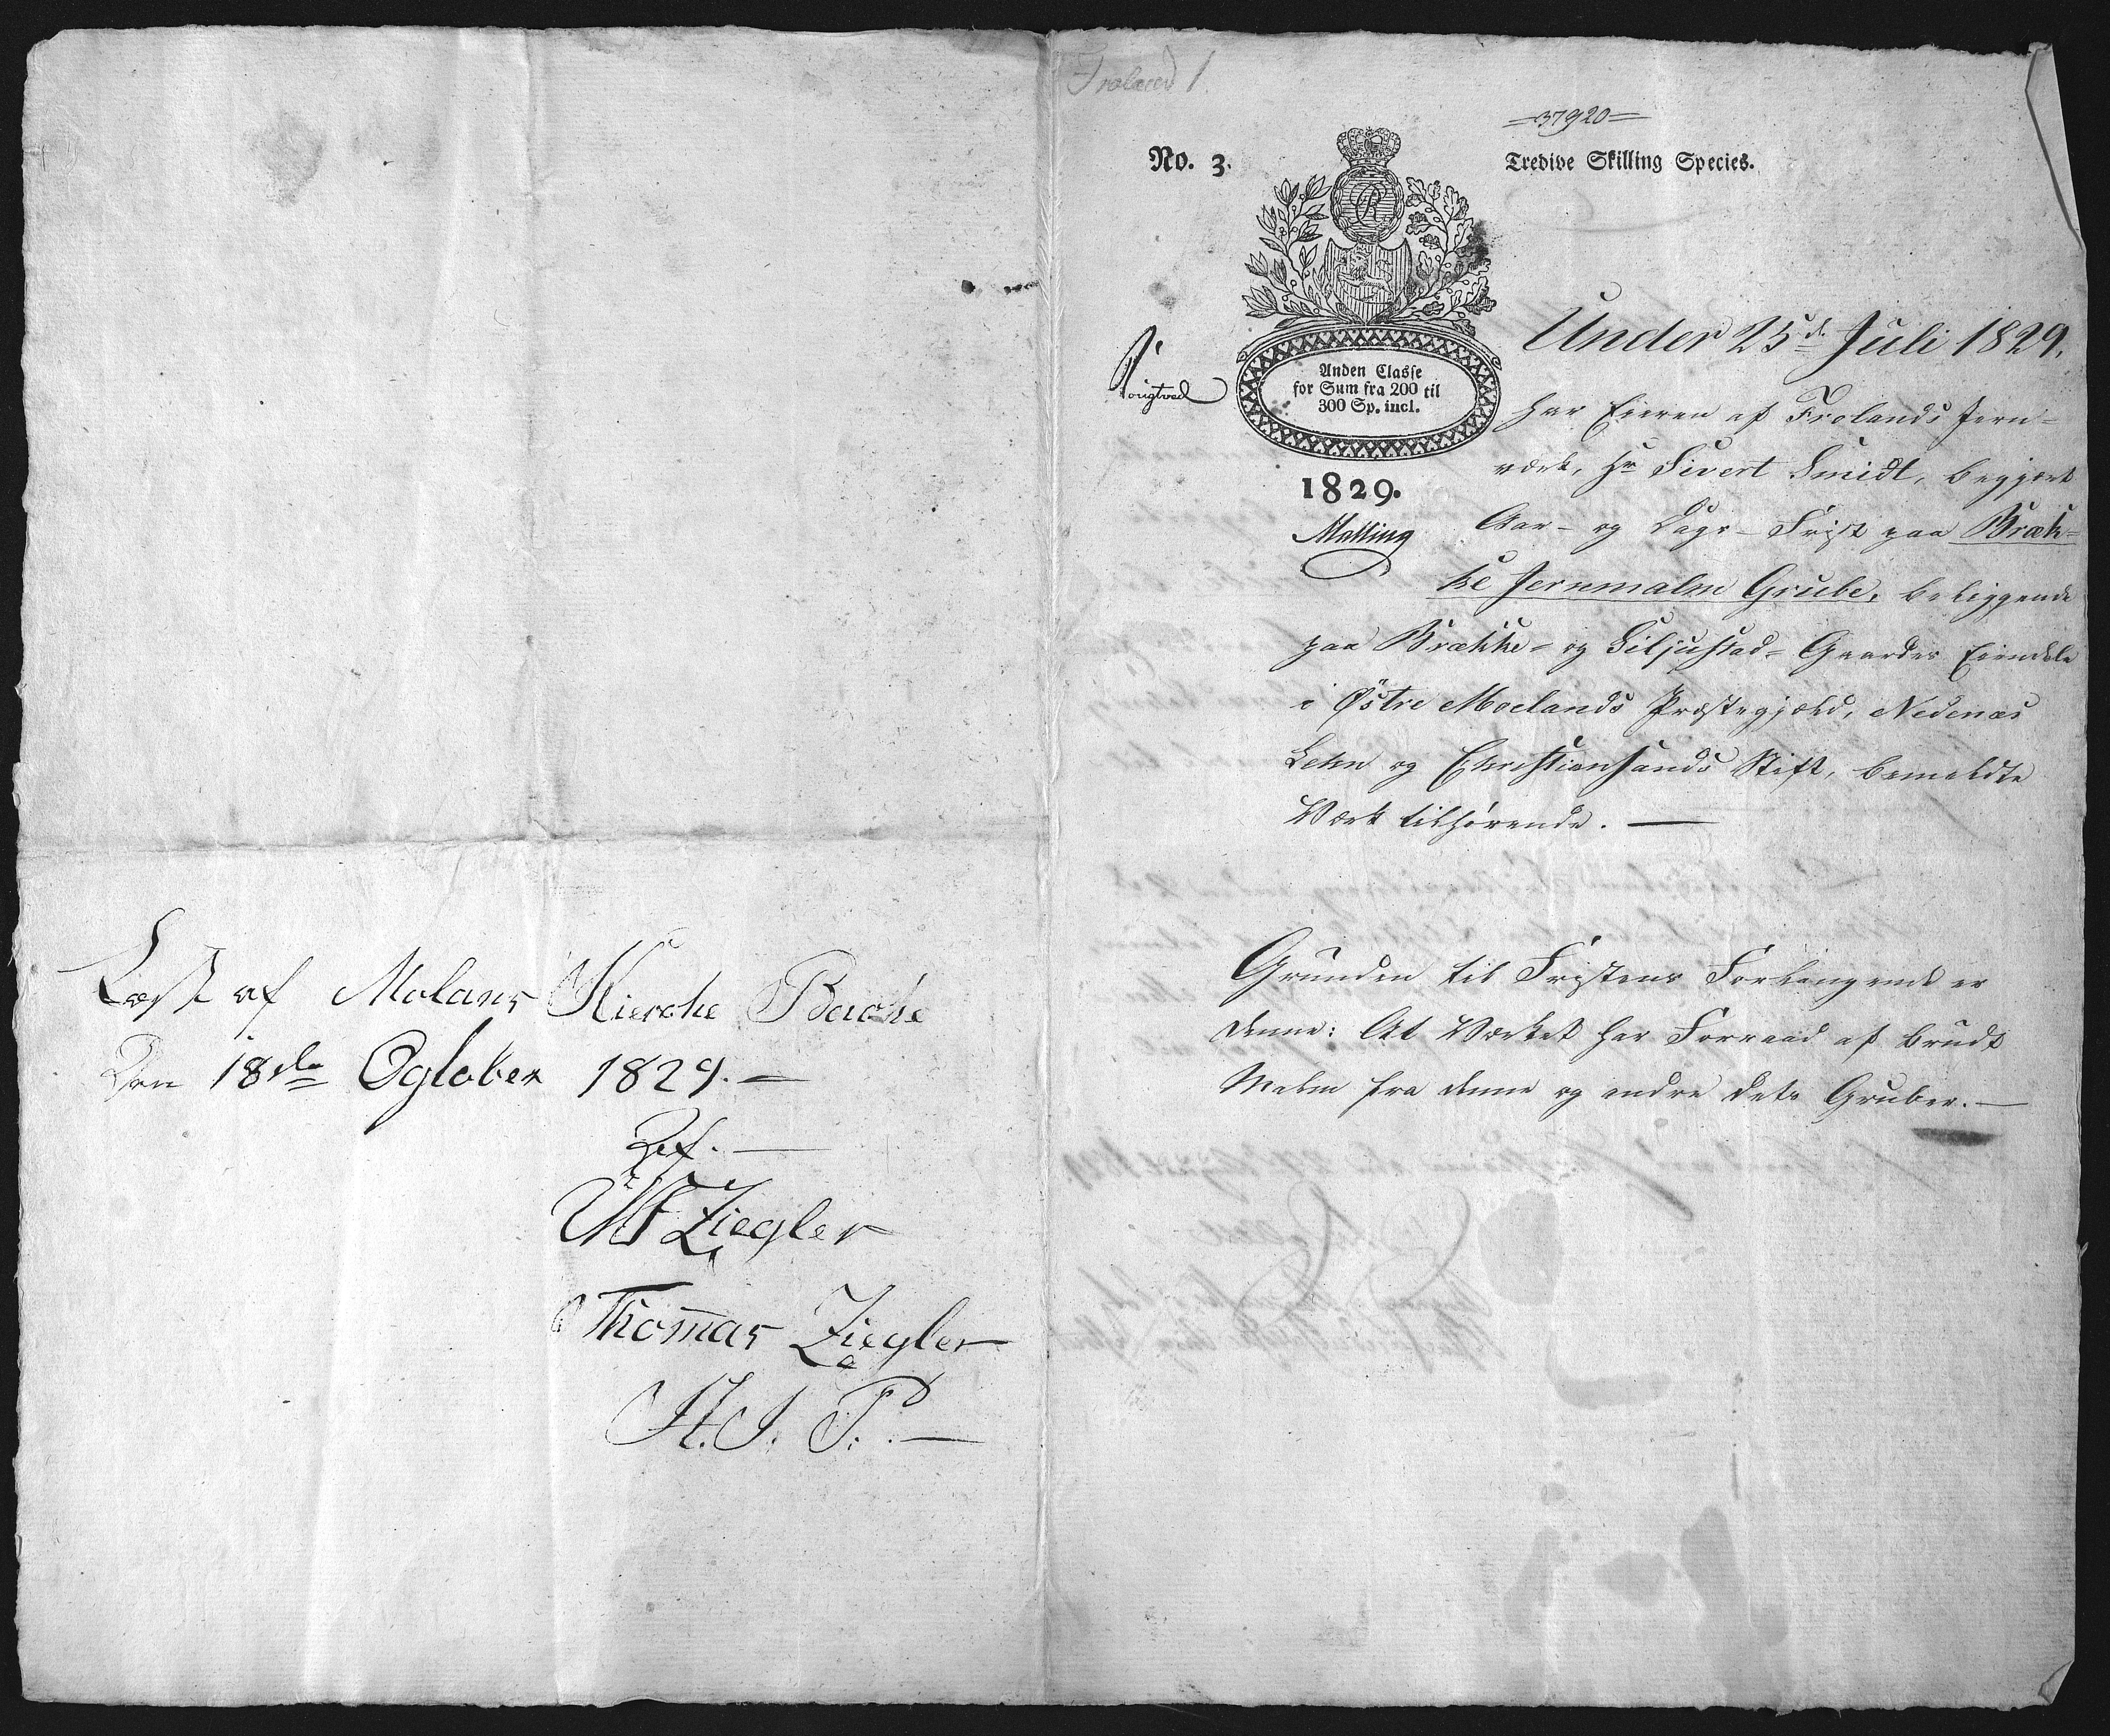 Læst af Molans Kierche Bache
Den 18de Ogtober 1829.—
Ziegler
Thomas Ziegler
Froland 1.
=37920=
No. 3.
Tredive Skilling Species.
Anden Classe
for Sum fra 200 til
300 Sp. incl.
1829.
Malling
Under 25d. Juli 1829,
har Eieren af Frolands Jern-
værk, Hr Sivert Smidt, begjært
Aar- og Dags-Frist paa Bræk-
ke Jernmalm Grube, beliggende
paa Brække- og Siljustad-Gaardes Eiendele
i Østre Moelands Præstegjæld, Nedenæs
Lehn og Christiansands Stift, bemeldte
Værk tilhørende.—
Grunden til Fristens Forlangende er
denne: At Værket har Forraad af brudt
Malm fra denne og andre dets Gruber.—